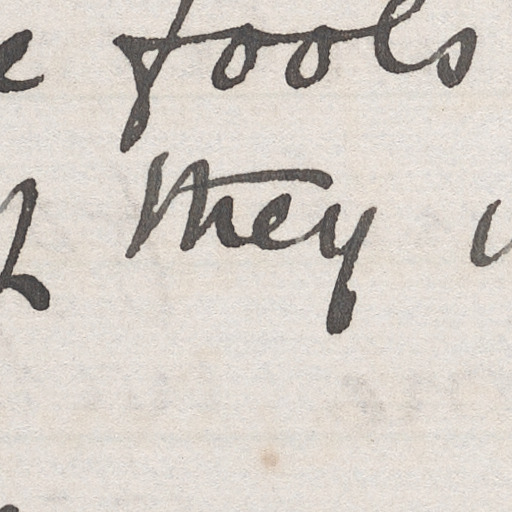 fools
they